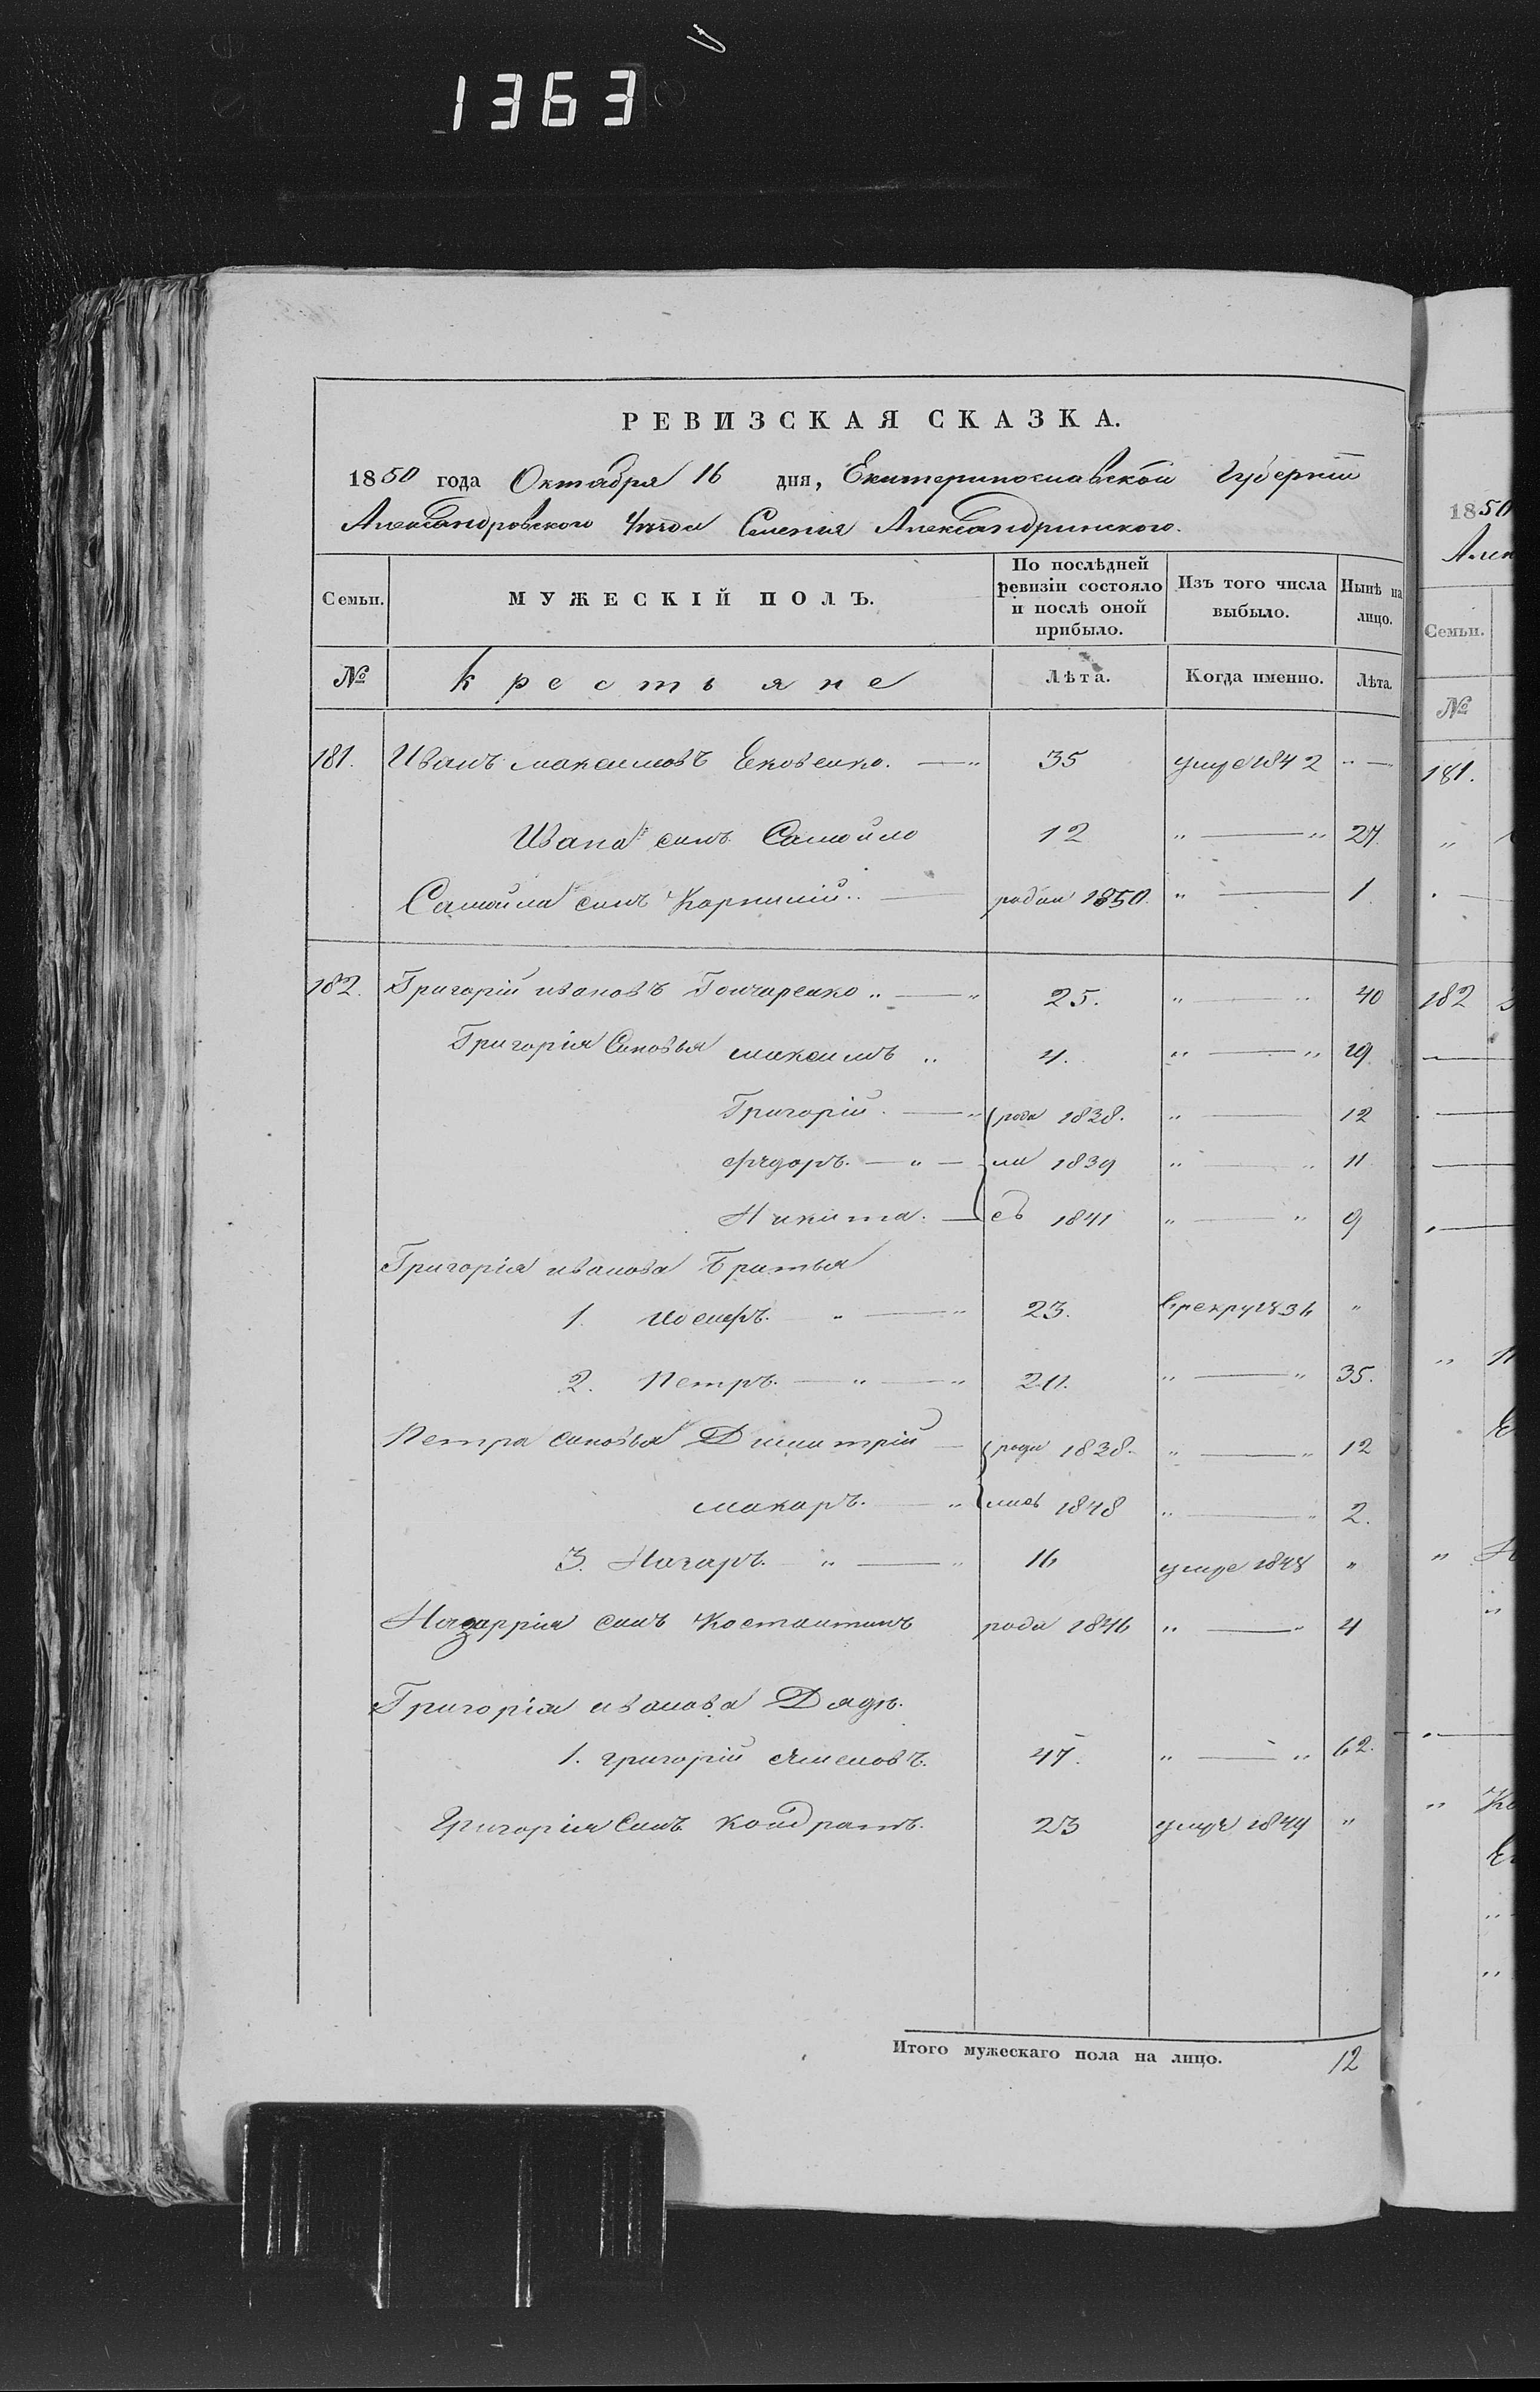 1363
РЕВИЗСКАЯ СКАЗКА.
1850 года Октября 16 дня, Екатеринославской Губернiи
Александровского Уѣзда Селенiя Александринского.
Семьи. МУЖЕСКІЙ ПОЛЪ. По послѣдней ревизіи состояло и послѣ оной прибыло. Изъ того числа выбыло. Нынѣ на лицо.
№ крестьяне Лѣта. Когда именно. Лѣта.
181. Иванъ максимовъ Яковенко. — " 35 умре 1842 " —
Ивана синъ Самойло 12 " — " 27
Самойла синъ Корнилій.. — родил 1850. " — 1
182. Григорій ивановъ Гончаренко " — " 25. " — " 40
Григорія Синовья максимъ " 4. " — " 19
Григорій. — " роди 1838. " — 12
Фёдоръ. — " — ли 1839 " — " 11
Никита. — съ 1841 " — " 9
Григорія иванова Братья
1. Иосифъ. " — " 23. Врекру 1836 "
2. Петръ. — " — " 20. " — " 35.
Петра синовья Димитрій — роди 1838. " — " 12
макаръ. — " лись 1848 " — " 2.
3. Назаръ. " — " 16 умре 1848 "
Назаррія синъ Костантинъ роди 1846 " — " 4
Григорія иванова Дядя.
1. григорій Семеновъ. 47. " — " 62.
Григорія Синъ Кондратъ. 23 умре 1849 "
Итого мужескаго пола на лицо. 12
1850
Алек
Семьи.
№
181.
182